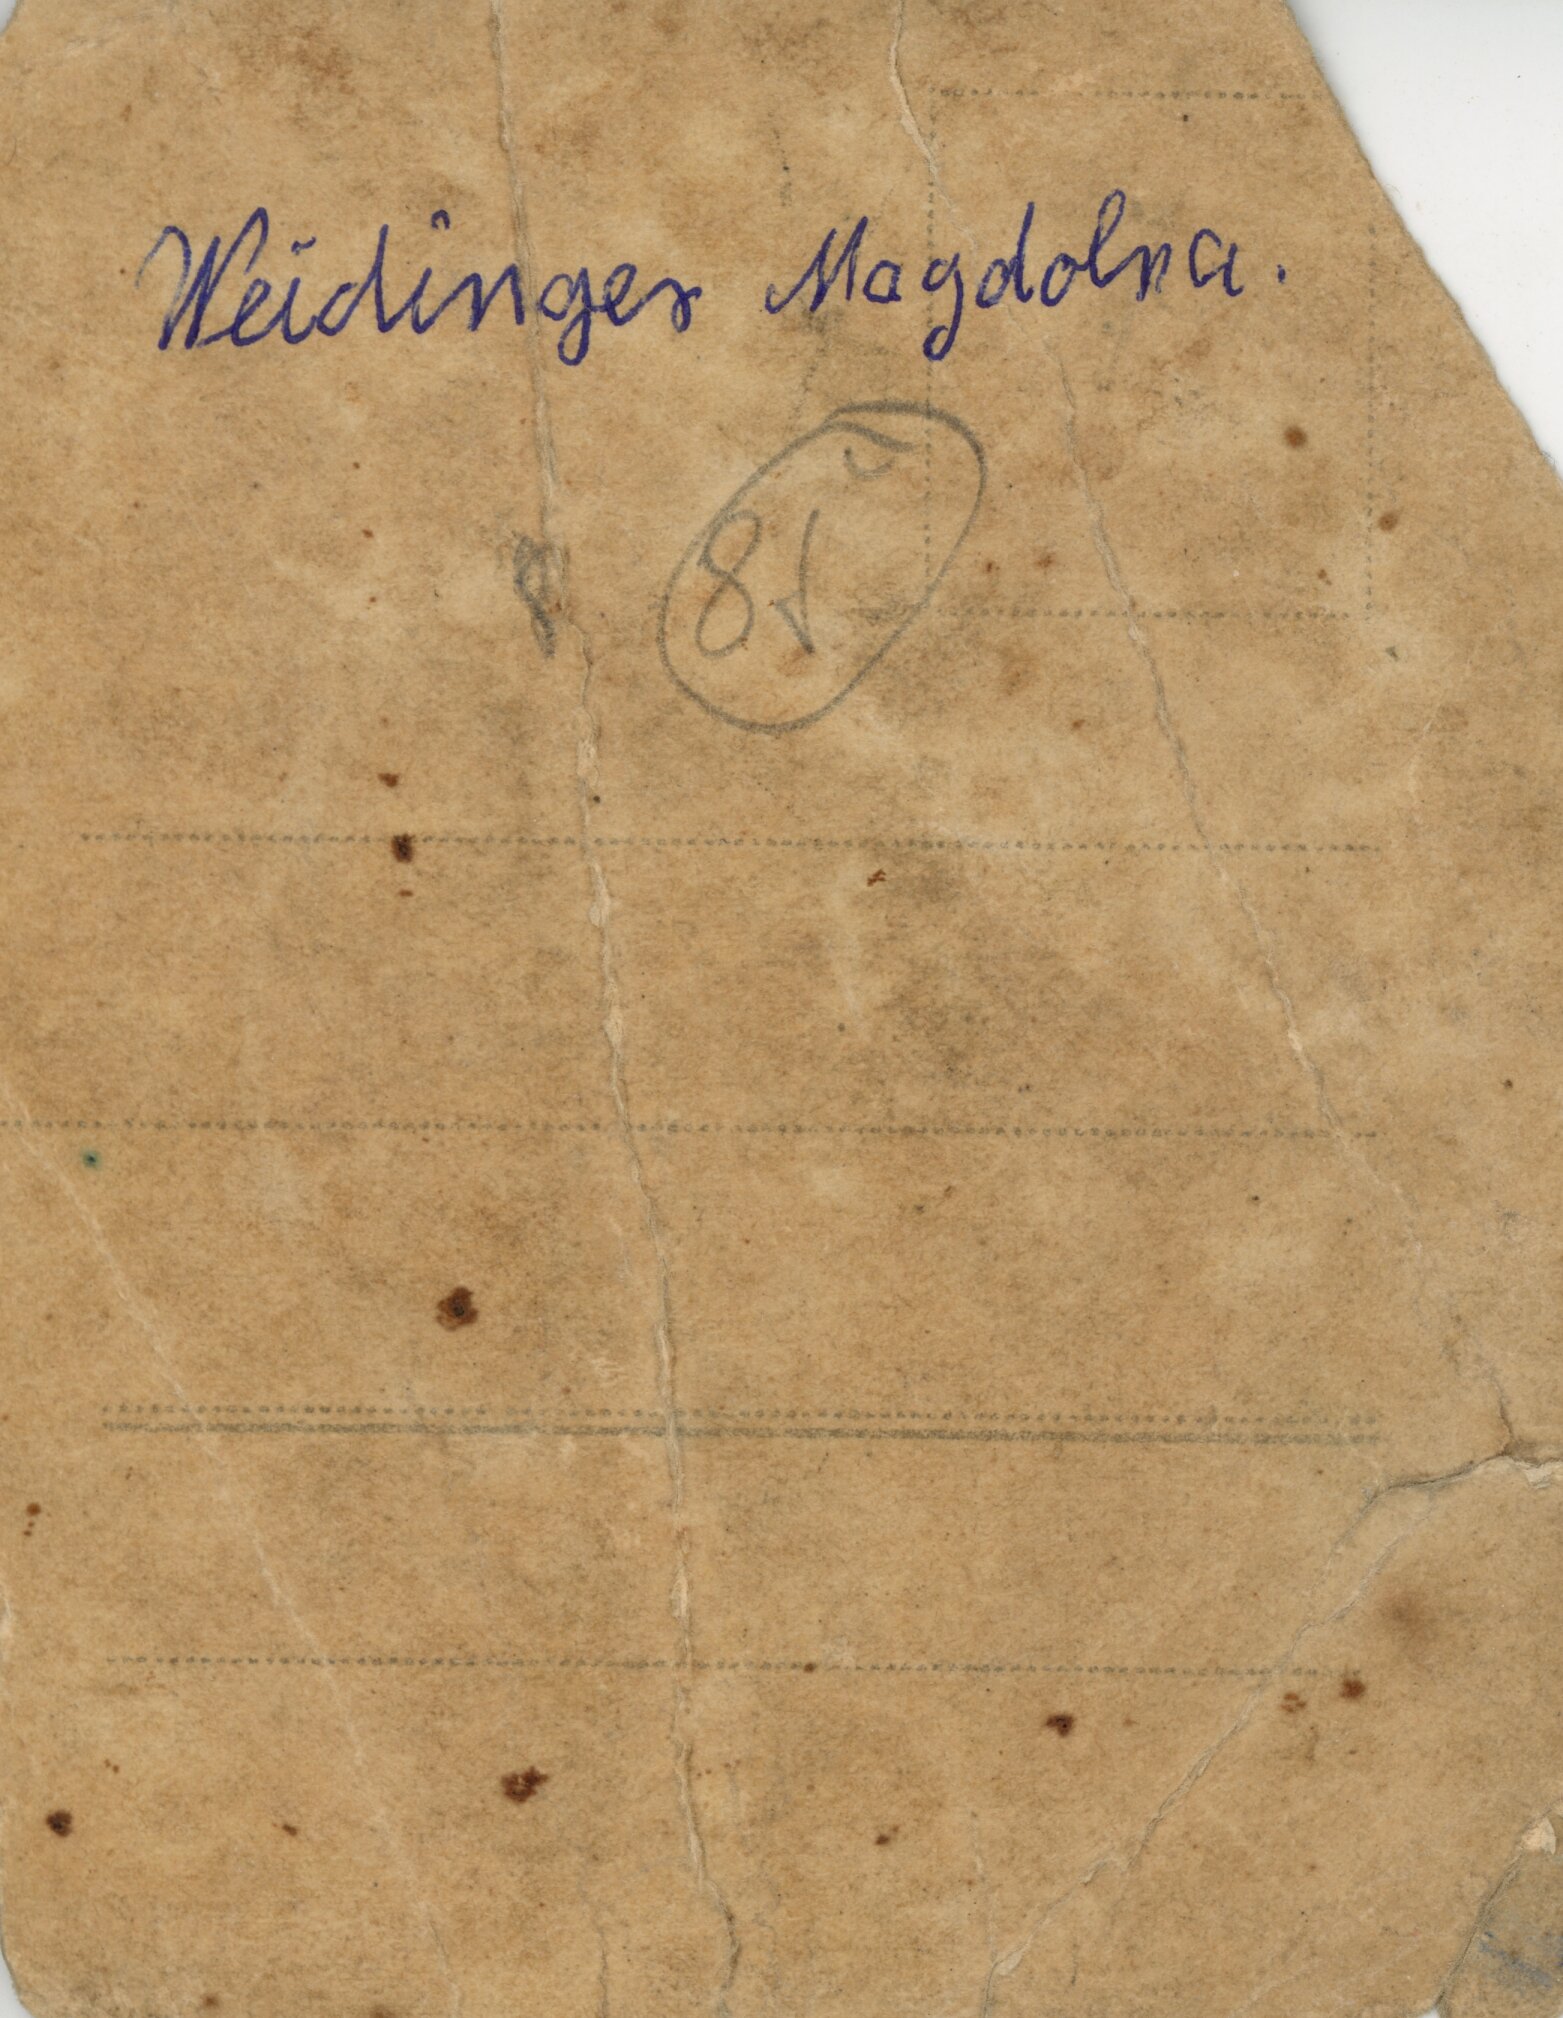 Weidinger Magdolna.